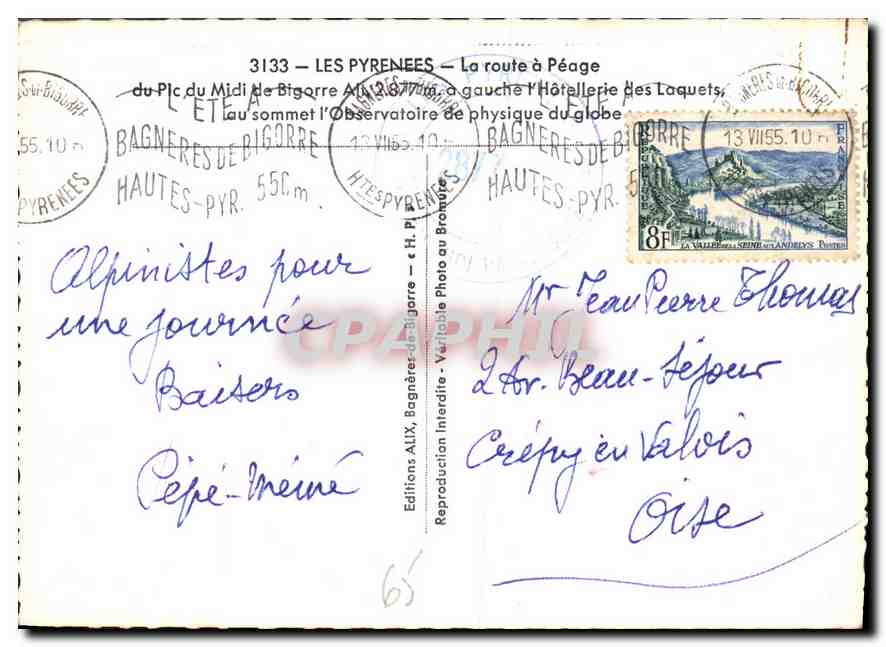 3133 — LES PYRENEES — La route à Péage
du Pic du Midi de Bigorre Alt. 2.877 m. à gauche l'Hôtellerie des Laquets,
au sommet l'Observatoire de physique du globe
L'ÉTÉ A
BAGNÈRES DE BIGORRE
HAUTES-PYR. 550m
BAGNÈRES-DE-BIGORRE
13 VII 55.10H
HTES PYRENEES
L'ÉTÉ A
BAGNÈRES DE BIGORRE
HAUTES-PYR. 550
13 VII 55.10H
55.10H
PYRENEES
REPUBLIQUE
FRANÇAISE
8F
LA VALLÉE DE LA SEINE AUX ANDELYS POSTES
Alpinistes pour
une journée
Baisers
Pépé-Mémé
Editions ALIX, Bagnères-de-Bigorre — « H. P. »
Reproduction Interdite - Véritable Photo au Bromure
Mr Jean Pierre Thomas
2 Av. Beau-Séjour
Crépy en Valois
Oise
65
CPAPHIL